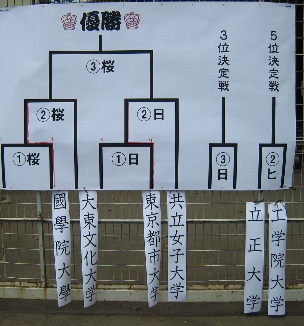 優勝
③桜
②桜
②日
①桜
①日
3位決定戦
③日
5位決定戦
②ヒ
國學院大學
大東文化大学
東京都市大学
共立女子大学
立正大学
工学院大学